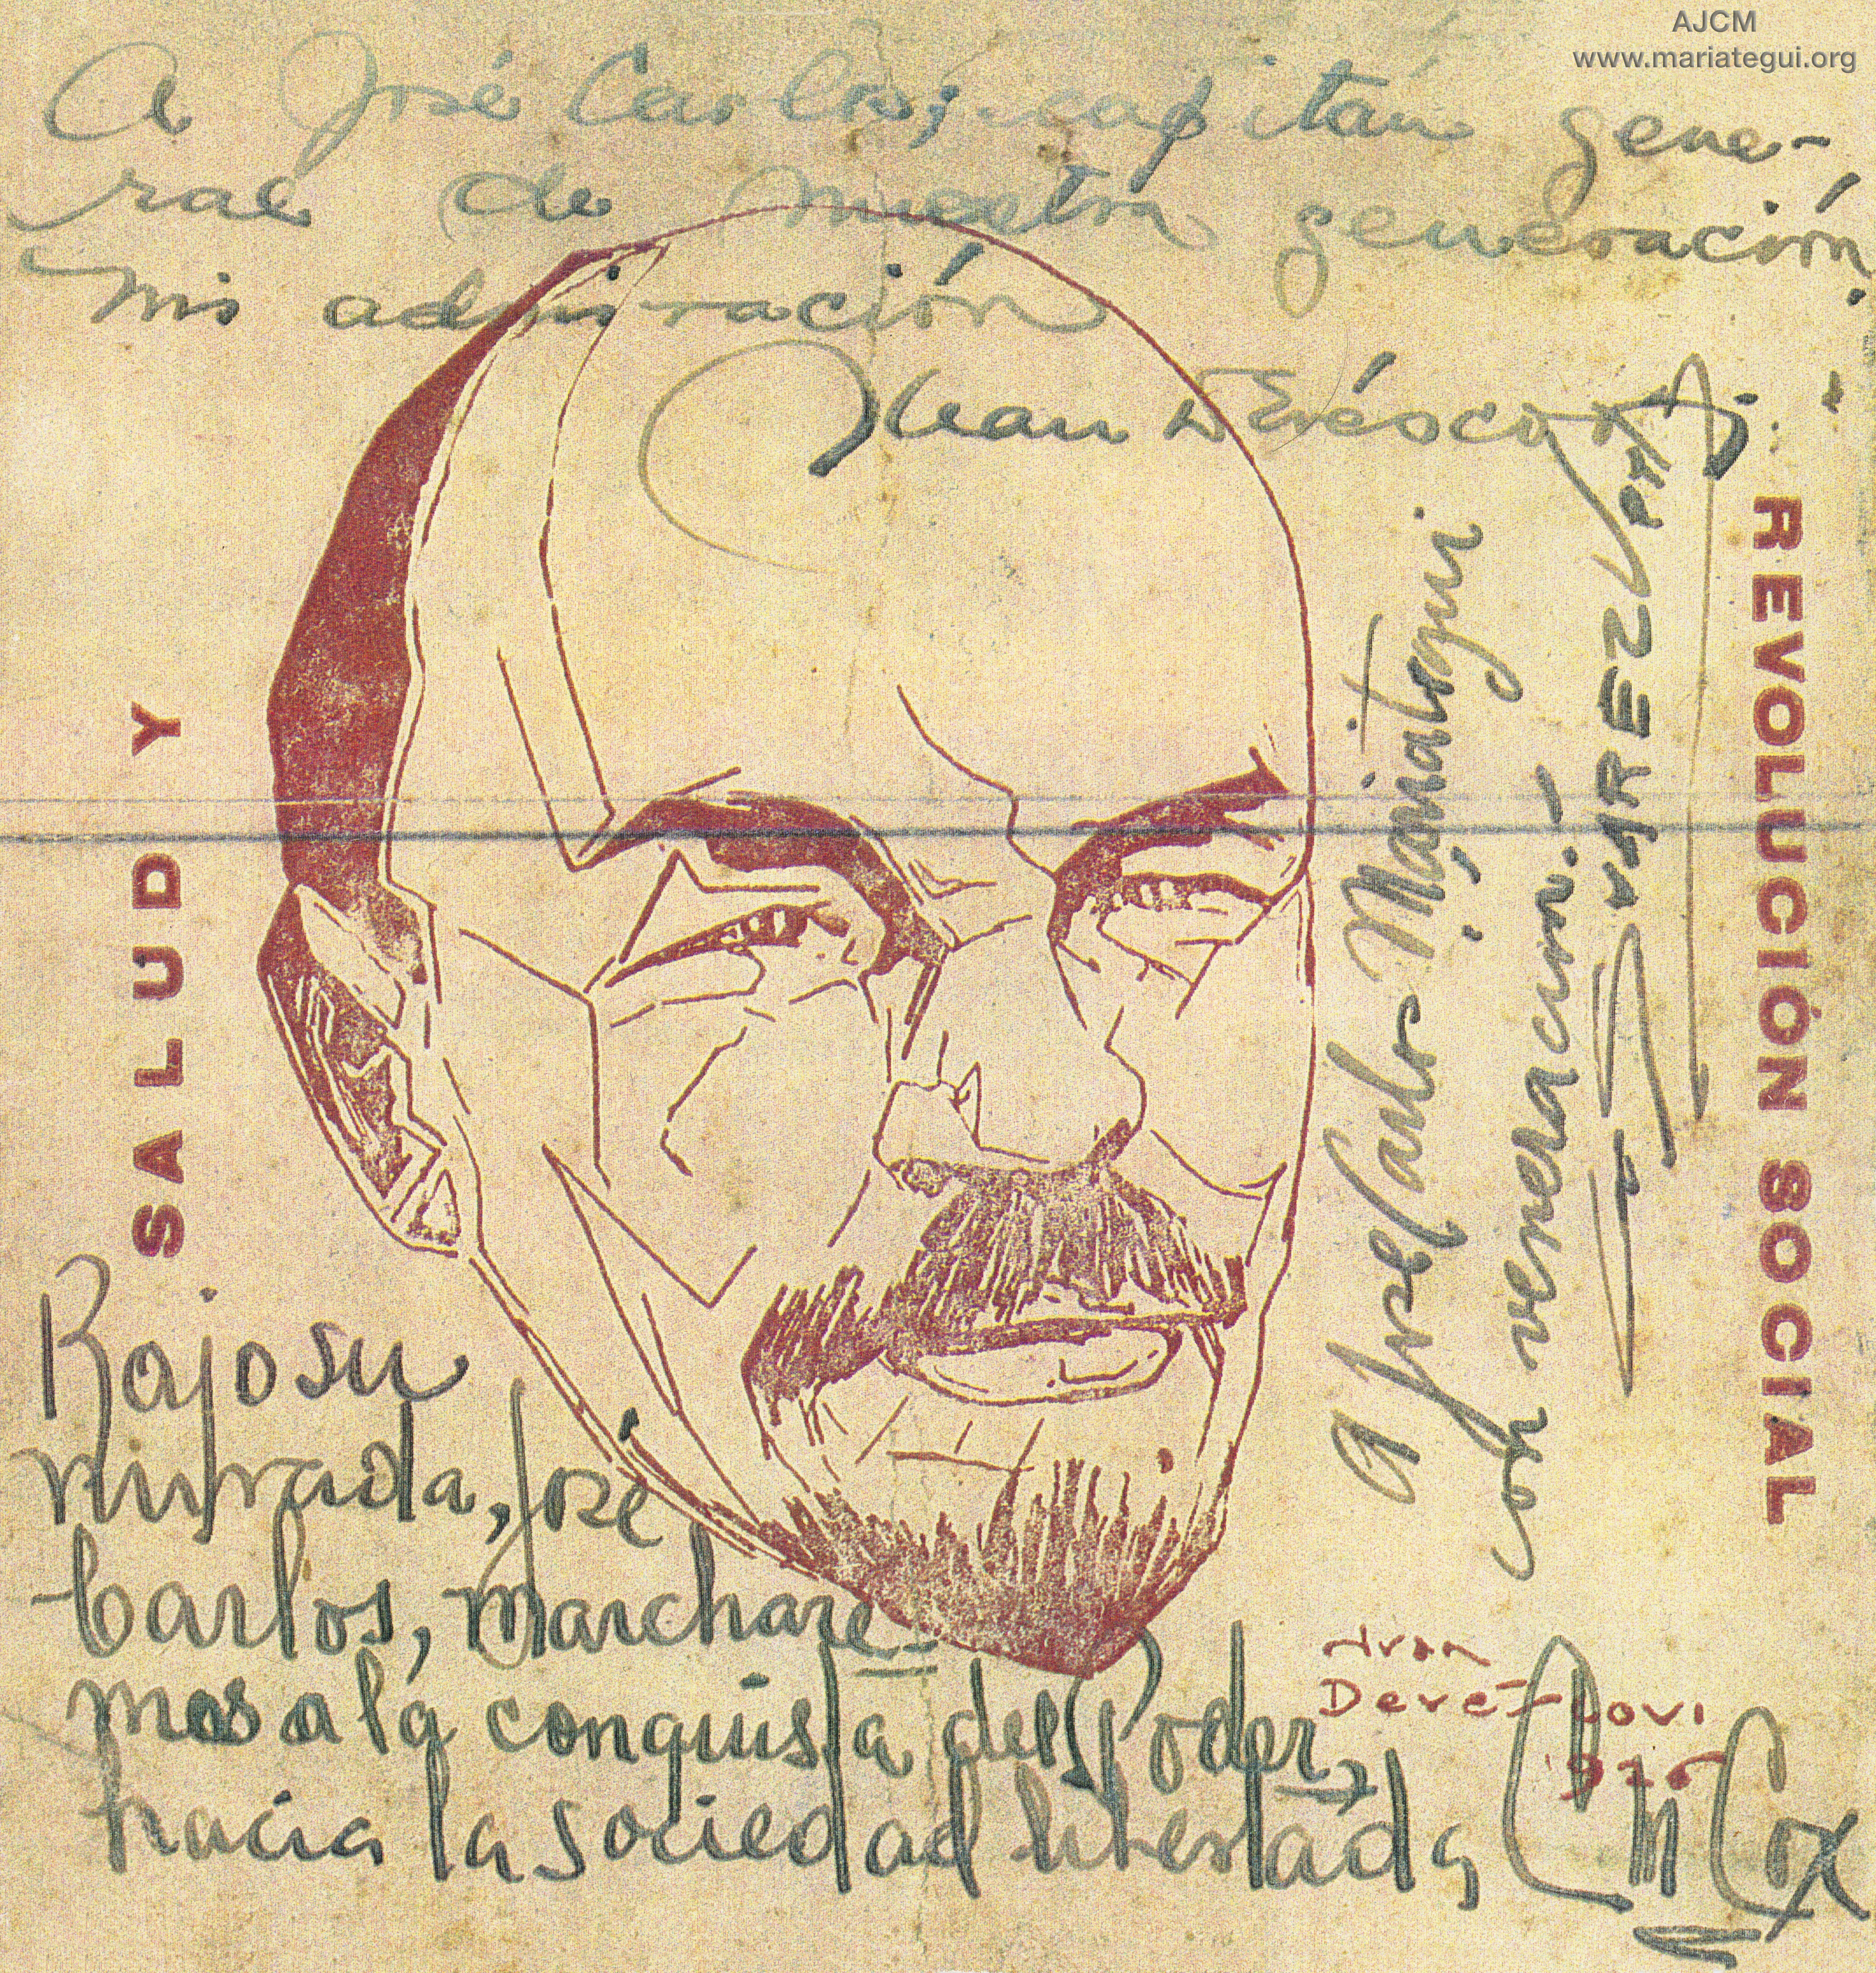 AJCM
www.mariategui.org
A José Carlos, capitán gene-
ral de nuestra generación,
mi admiración
Juan Devéscovi
SALUD Y
REVOLUCIÓN SOCIAL
A José Carlos Mariátegui
con veneración.
SUAREZ
Bajo su
mirada, José
Carlos, marchare-
mos a la conquista del Poder,
hacia la sociedad libertada
Cox
Juan
Devéscovi